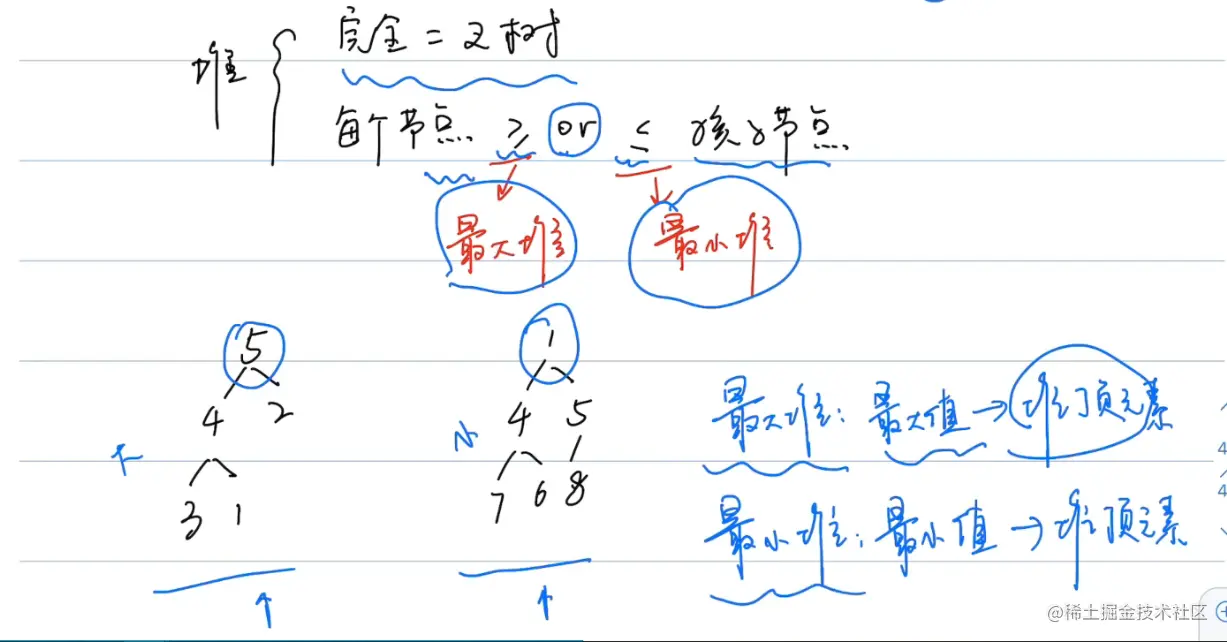 堆
完全二叉树
每个节点 ≥ or ≤ 孩子节点
最大堆 最小堆
5
4 2
大
3 1
1
4 5
小
7 6 8
最大堆：最大值→堆顶元素
最小堆：最小值→堆顶元素
4
4
@稀土掘金技术社区